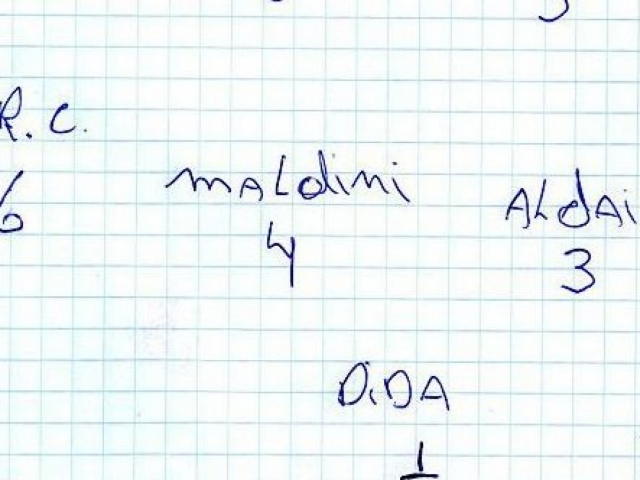 R. C.
6
maldini
4
ALDAi
3
DiDA
1